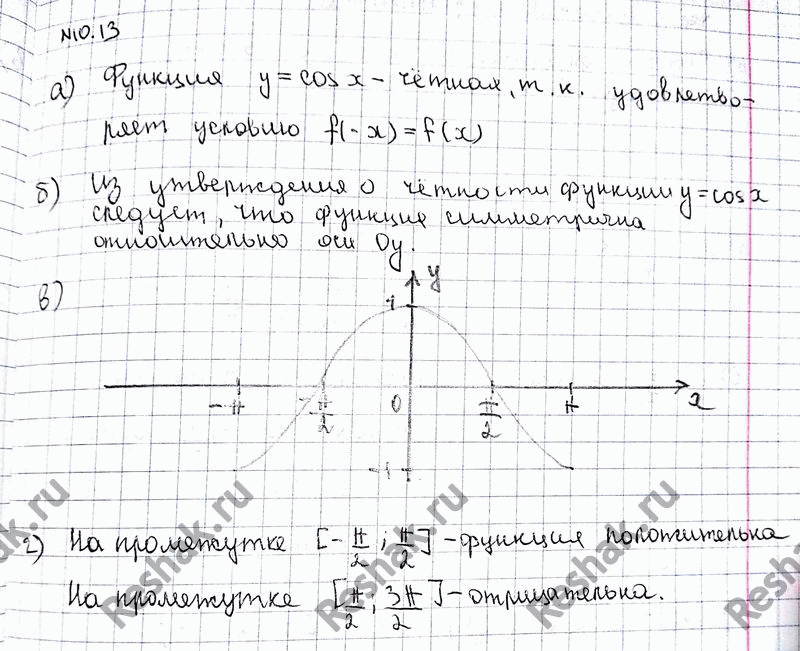 №10.13
а) Функция y = cos x – чётная, т. к. удовлетво-
ряет условию f(-x) = f(x)
б) Из утверждения о чётности функции y = cos x
следует, что функция симметрична
относительно оси Oy.
в)
y
1
-π -π/2 0 π/2 π x
-1
г) На промежутке [-π/2 ; π/2] – функция положительна
На промежутке [π/2 ; 3π/2] – отрицательна.
Reshak.ru
Reshak.ru
Reshak.ru
Reshak.ru